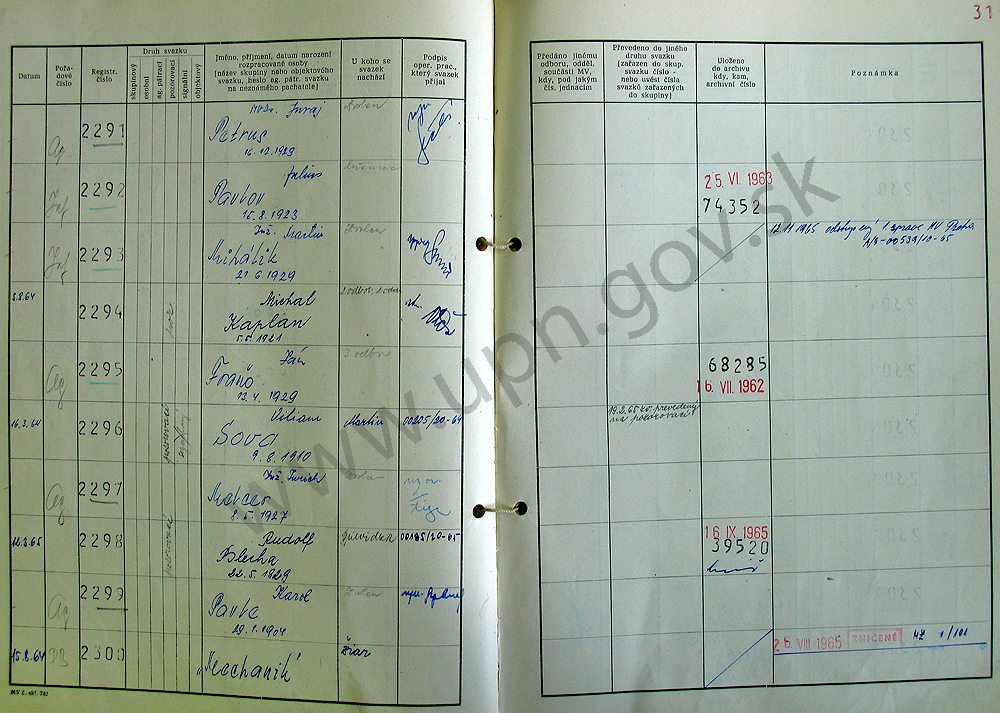 31
Datum
Pořa-
dové
číslo
Registr.
číslo
Druh svazku
skupinový
osobní
ag. pátrací
pozorovací
signální
objektový
Jméno, příjmení, datum narození
rozpracované osoby
(název skupiny nebo objektového
svazku, heslo ag. pátr. svazku
na neznámého pachatele)
U koho se
svazek
nachází
Podpis
oper. prac.,
který svazek
přijal
Předáno jinému
odboru, odděl.
součásti MV,
kdy, pod jakým
čís. jednacím
Převedeno do jiného
druhu svazku
(zařazen do skup.
svazku číslo -
nebo uvést čísla
svazků zařazených
do skupiny)
Uloženo
do archivu
kdy, kam,
archivní číslo
Poznámka
Ag.
2291
MVDr. Juraj
Petrus
16.12.1929
Zvolen
Inf.
2292
Július
Pavlov
15.8.1923
25. VI. 1963
74352
Inf.
2293
Inž. Martin
Mihálik
21.6.1929
Zvolen
12.11.1965 odstúpený 1. správe MV Praha
A/8-00539/10-65
5.8.64
2294
Michal
Kaplan
5.5.1921
Ag
2295
Ján
Fraňo
13.4.1929
3 odbor
68285
16. VII. 1962
16.3.64
2296
pozorovací
Viliam
Sova
9.8.1910
Martin
00205/20-64
19.2.65 zv. prevedený
na pozorovací
Ag
2297
8.5.1927
12.3.65
2298
pozorovací
Rudolf
Blecha
22.5.1929
Prievidza
00195/20-65
16 IX. 1965
39520
Ag
2299
Karol
Pavle
29.1.1904
Zvolen
15.8.64
PB
2300
„Mechanik"
Žiar
26. VIII 1965 ZNIČENÉ MZ 1/101
MV č. skl. 732
www.upn.gov.sk